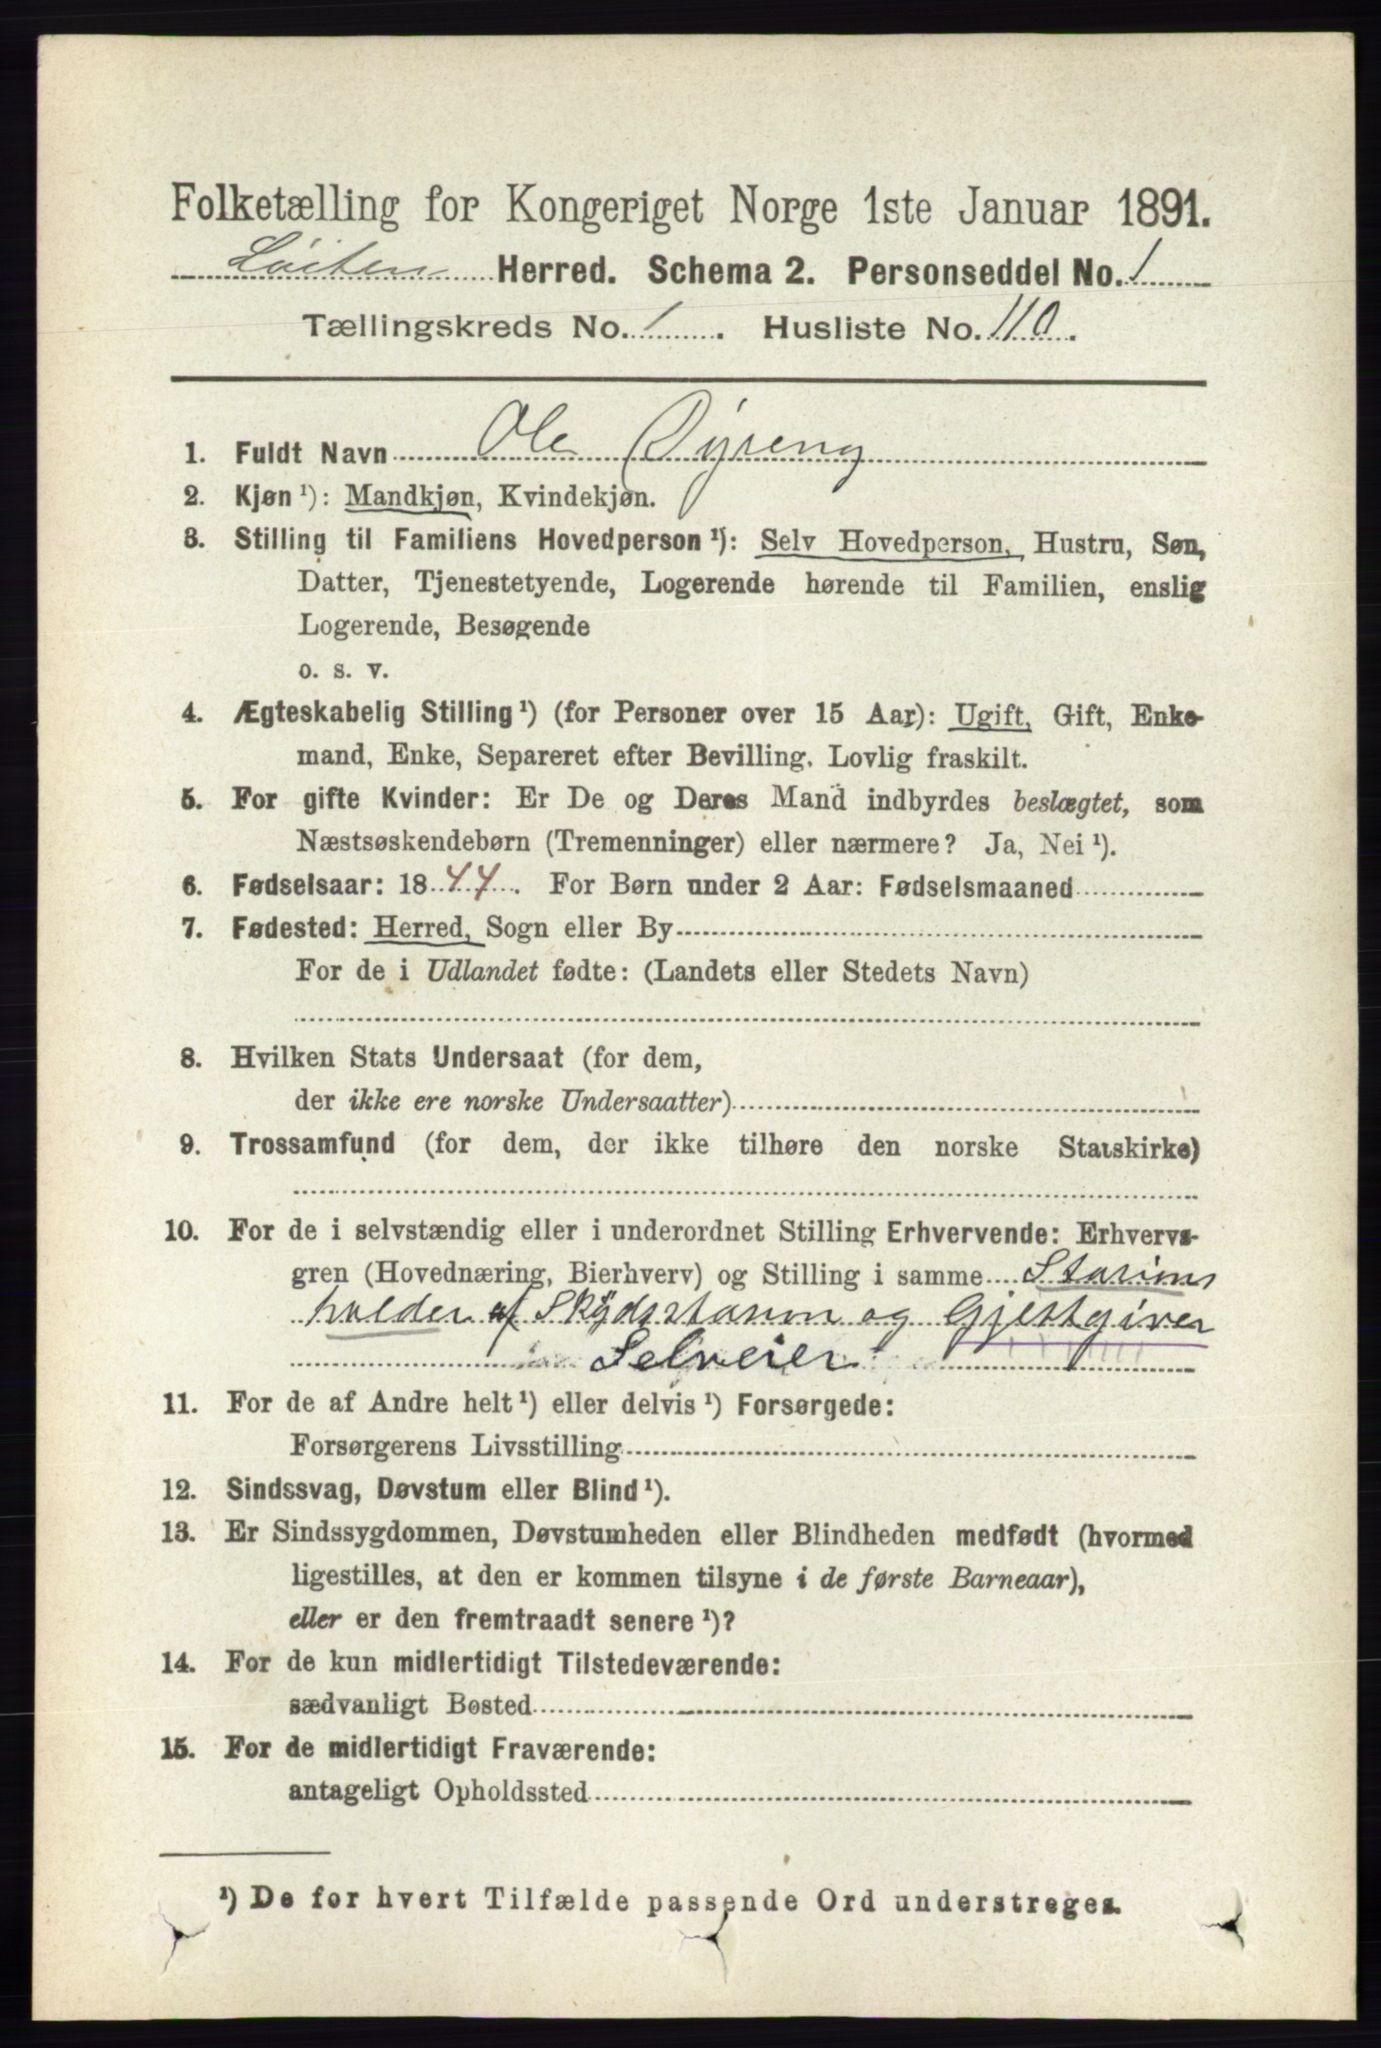 Folketælling for Kongeriget Norge 1ste Januar 1891.
Løiten Herred. Schema 2. Personseddel No. 1
Tællingskreds No. 1. Husliste No. 110.
1. Fuldt Navn Ole Dyreng
2. Kjøn ¹): Mandkjøn, Kvindekjøn.
3. Stilling til Familiens Hovedperson ¹): Selv Hovedperson, Hustru, Søn,
Datter, Tjenestetyende, Logerende hørende til Familien, enslig
Logerende, Besøgende
o. s. v.
4. Ægteskabelig Stilling ¹) (for Personer over 15 Aar): Ugift, Gift, Enke-
mand, Enke, Separeret efter Bevilling. Lovlig fraskilt.
5. For gifte Kvinder: Er De og Deres Mand indbyrdes beslægtet, som
Næstsøskendebørn (Tremenninger) eller nærmere? Ja, Nei ¹).
6. Fødselsaar: 1847. For Børn under 2 Aar: Fødselsmaaned
7. Fødested: Herred, Sogn eller By
For de i Udlandet fødte: (Landets eller Stedets Navn)
8. Hvilken Stats Undersaat (for dem,
der ikke ere norske Undersaatter)
9. Trossamfund (for dem, der ikke tilhøre den norske Statskirke)
10. For de i selvstændig eller i underordnet Stilling Erhvervende: Erhvervs-
gren (Hovednæring, Bierhverv) og Stilling i samme Stations
holder af Skydsstation og Gjestgiver
Selveier
11. For de af Andre helt ¹) eller delvis ¹) Forsørgede:
Forsørgerens Livsstilling
12. Sindssvag, Døvstum eller Blind ¹).
13. Er Sindssygdommen, Døvstumheden eller Blindheden medfødt (hvormed
ligestilles, at den er kommen tilsyne i de første Barneaar),
eller er den fremtraadt senere ¹)?
14. For de kun midlertidigt Tilstedeværende:
sædvanligt Bosted
15. For de midlertidigt Fraværende:
antageligt Opholdssted
¹) De for hvert Tilfælde passende Ord understreges.